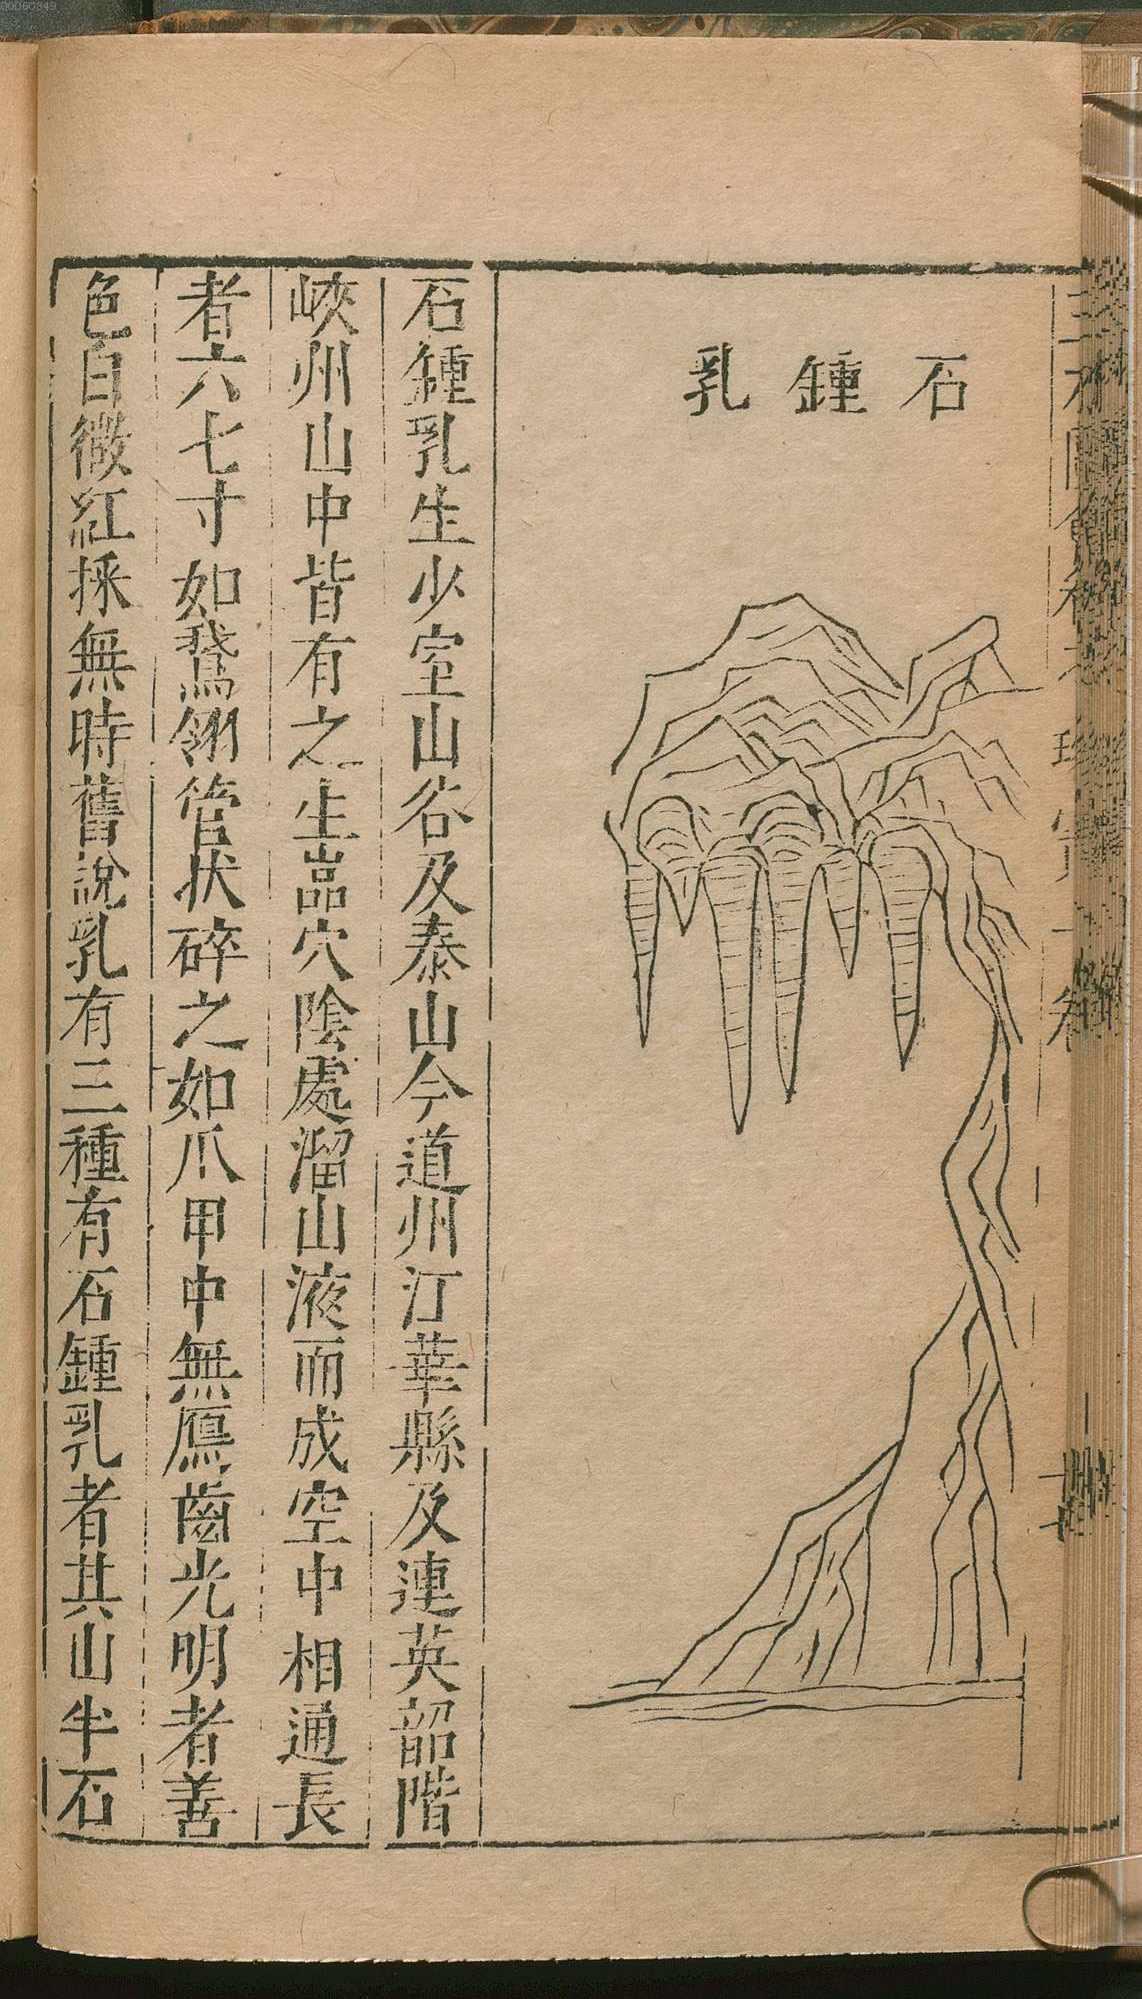 石鍾乳
石鍾乳生少室山谷及泰山今道州江華縣及連英韶階
峽州山中皆有之生嵓穴陰處溜山液而成空中相通長
者六七寸如鵞翎管狀碎之如爪甲中無鴈齒光明者善
色白微紅採無時舊說乳有三種有石鍾乳者其山半石
00060849